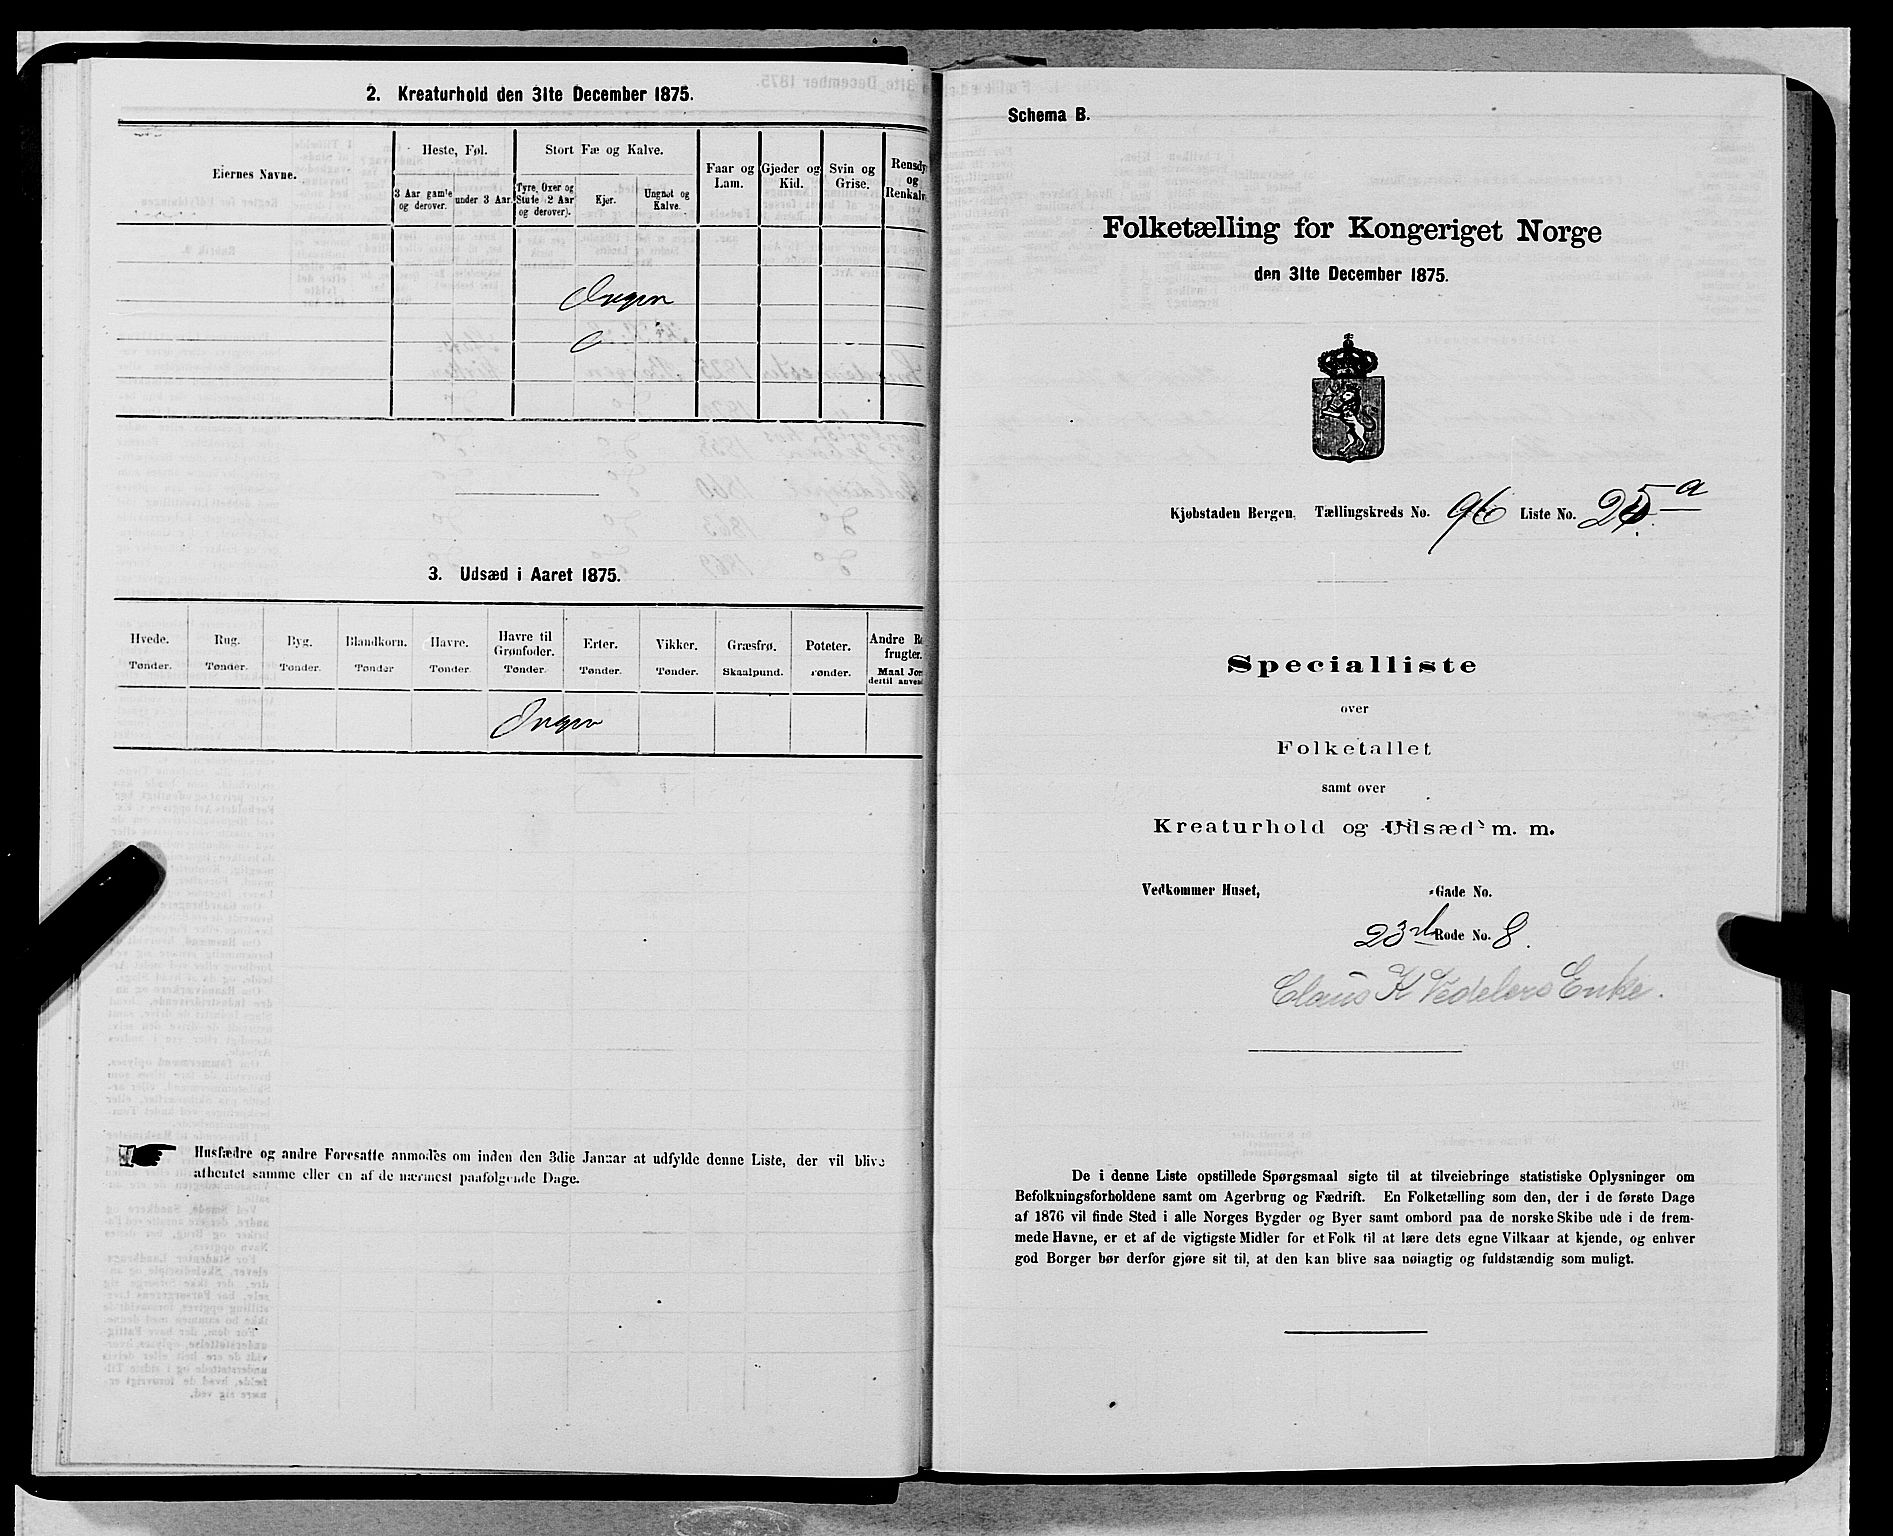 2. Kreaturhold den 31te December 1875.
Eiernes Navne.
Heste, Føl.
3 Aar gamle og derover.
under 3 Aar.
Stort Fæ og Kalve.
Tyre, Oxer og Stude (2 Aar og derover).
Kjør.
Ungnøt og Kalve.
Faar og Lam.
Gjeder og Kid.
Svin og Grise.
Rensdy og Renkalv
Ingen
3. Udsæd i Aaret 1875.
Hvede. Rug. Byg. Blandkorn. Havre. Havre til Grønfoder. Erter. Vikker. Græsfrø. Poteter. Andre Ro frugter.
Tønder. Tønder. Tønder. Tønder Tønder. Tønder. Tønder. Tønder. Skaalpund. Tønder. Maal Jor dertil anvend
Ingen
Husfædre og andre Foresatte anmodes om inden den 3die Januar at udfylde denne Liste, der vil blive
afhentet samme eller en af de nærmest paafølgende Dage.
Schema B.
Folketælling for Kongeriget Norge
den 31te December 1875.
Kjøbstaden Bergen. Tællingskreds No. 96 Liste No. 25 a
Specialliste
over
Folketallet
samt over
Kreaturhold og Udsæd m. m.
Vedkommer Huset, -Gade No.
23de Rode No. 8.
Claus K Vedelers Enke.
De i denne Liste opstillede Spørgsmaal sigte til at tilveiebringe statistiske Oplysninger om
Befolkningsforholdene samt om Agerbrug og Fædrift. En Folketælling som den, der i de første Dage
af 1876 vil finde Sted i alle Norges Bygder og Byer samt ombord paa de norske Skibe ude i de frem-
mede Havne, er et af de vigtigste Midler for et Folk til at lære dets egne Vilkaar at kjende, og enhver
god Borger bør derfor gjøre sit til, at den kan blive saa nøiagtig og fuldstændig som muligt.